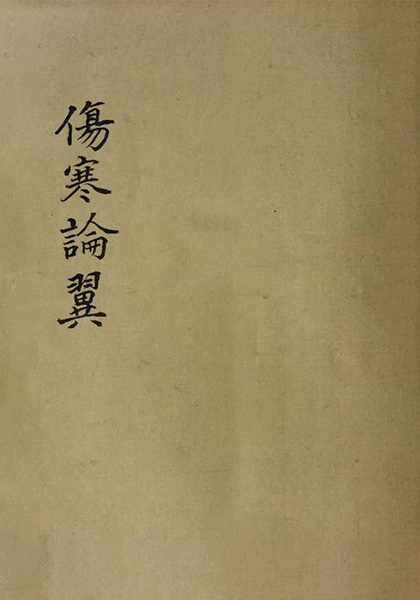 傷寒論翼